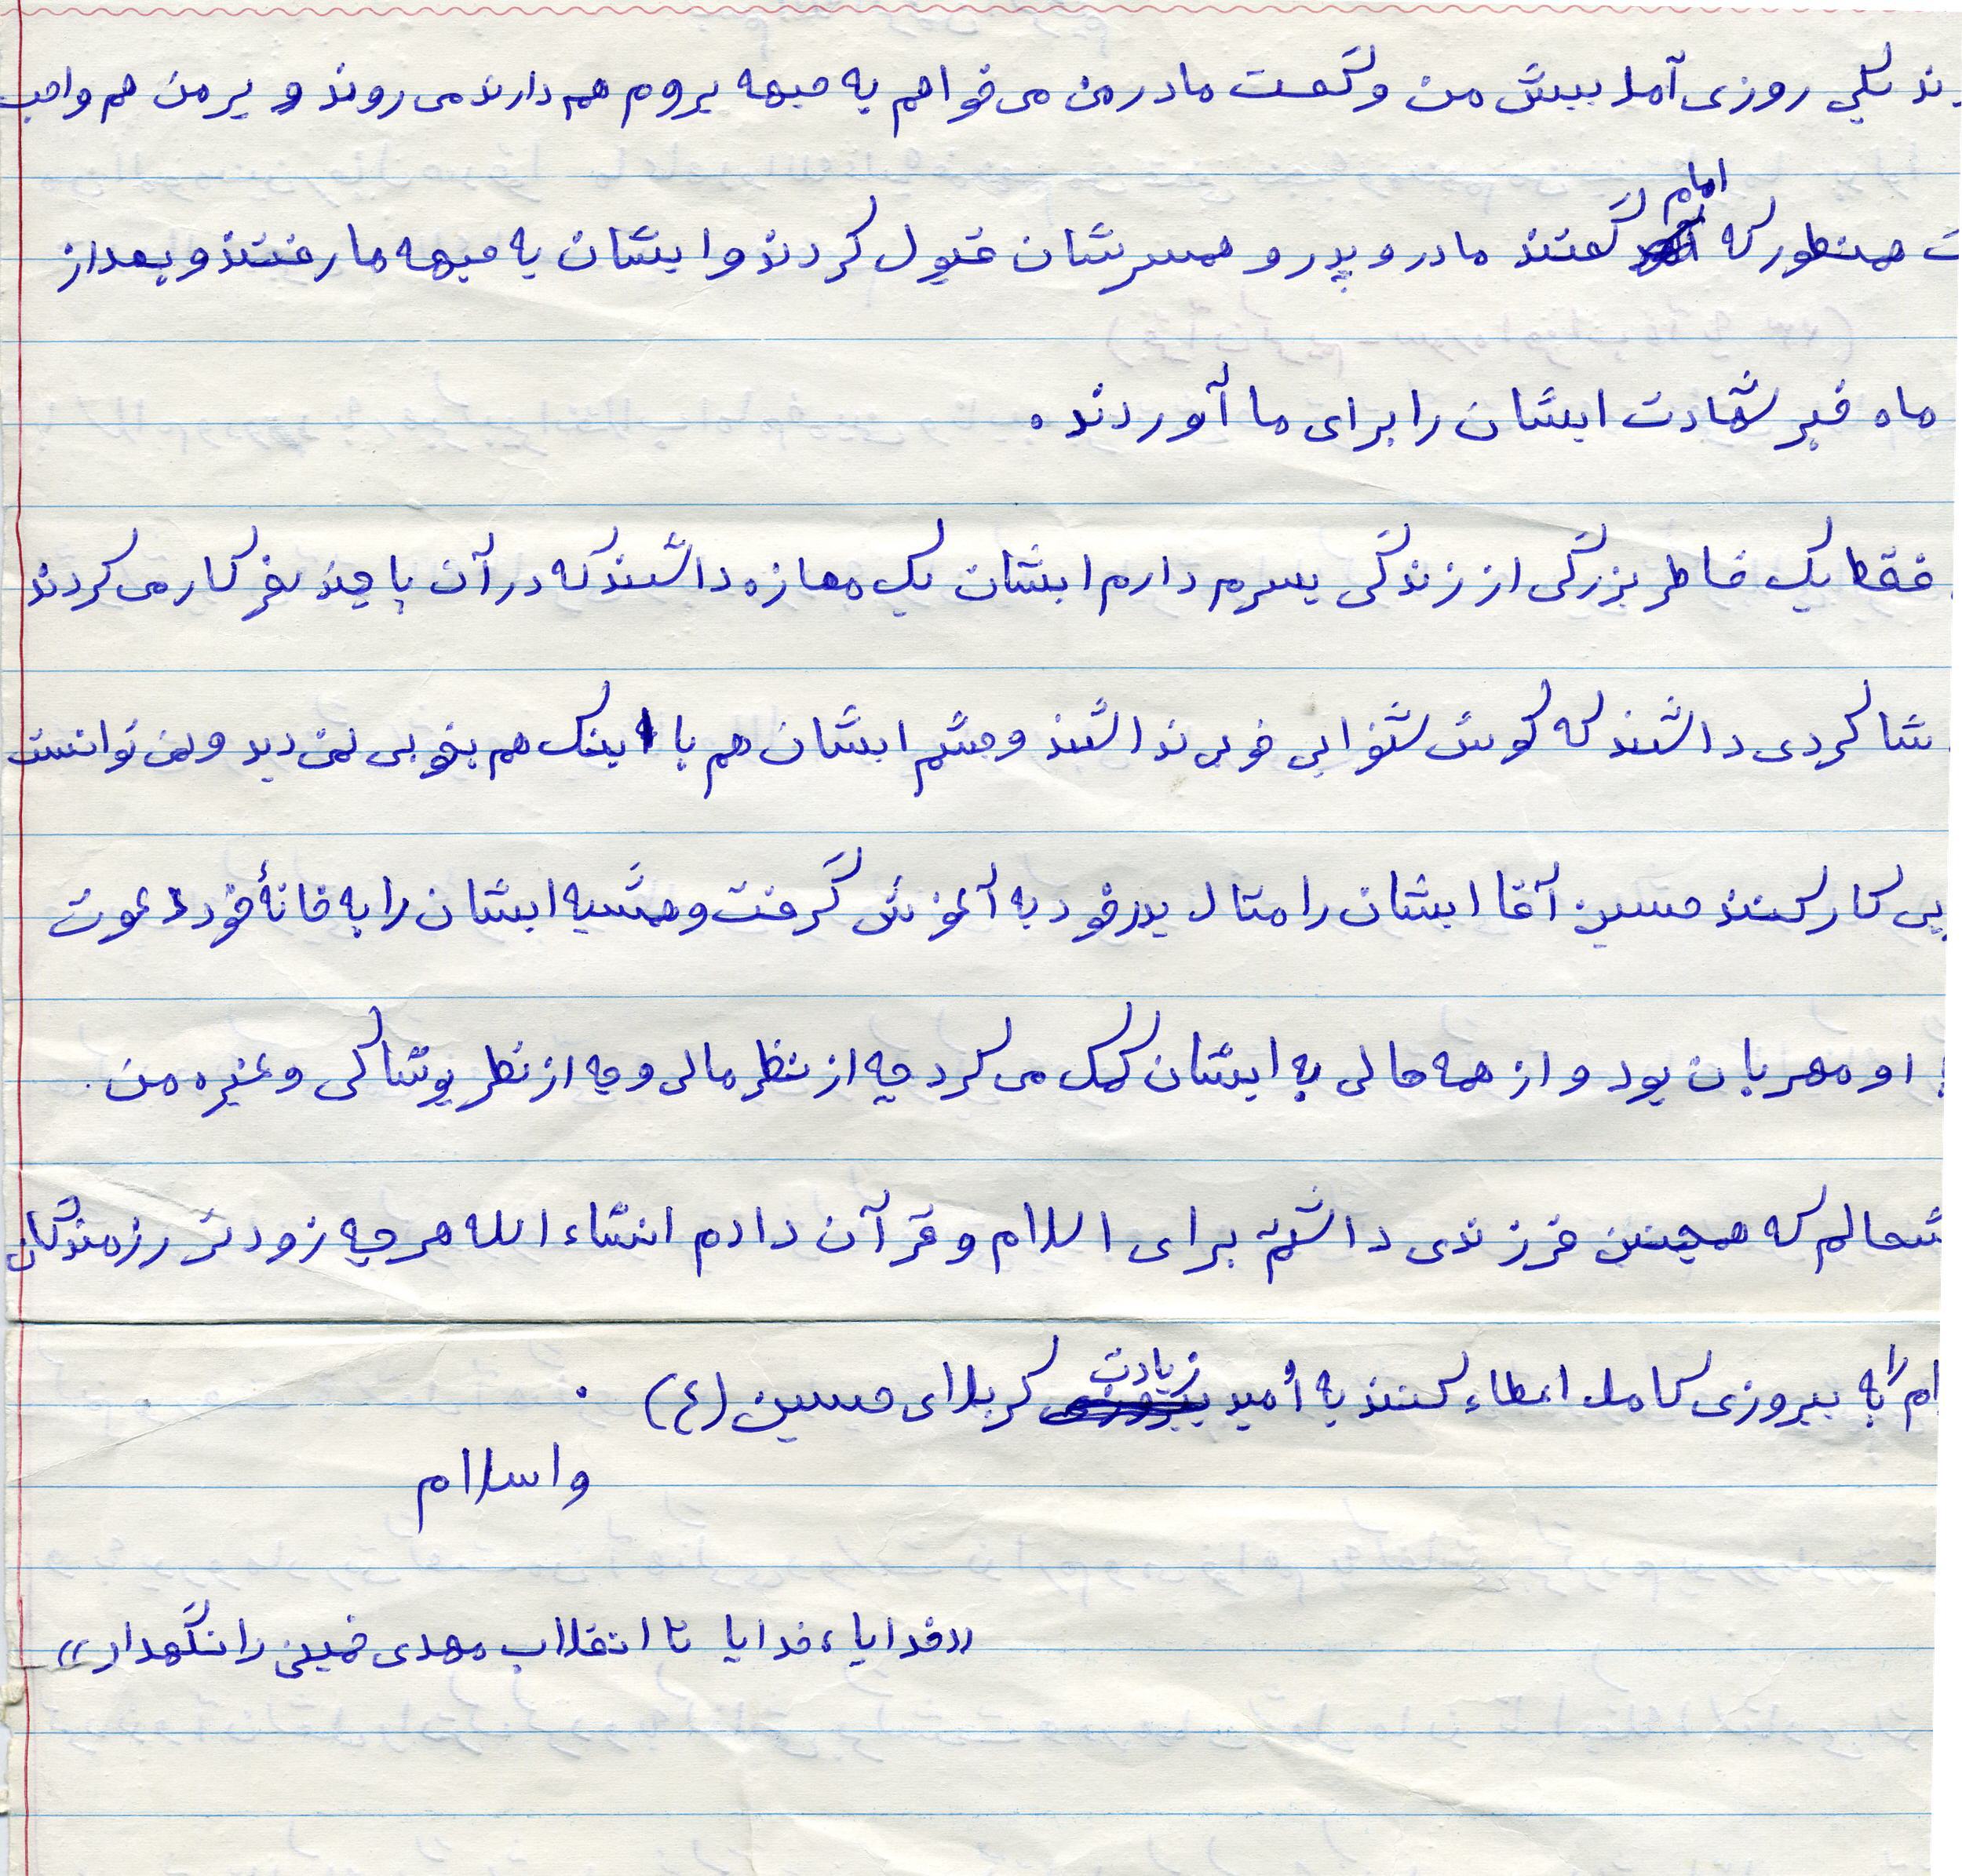 ند یکی روزی آمد پیش من و گفت مادر من می خواهم به جبهه بروم هم دارند می روند و بر من هم واجب
ت همنطور که امام گفتند مادر و پدر و همسرشان قبول کردند و ایشان به جبهه ها رفتند و بعد از
ماه خبر شهادت ایشان را برای ما آوردند .
فقط یک خاطر بزرگی از زندگی پسرم دارم ایشان یک مغازه داشتند که در آن با چند نفر کار می کردند
شاگردی داشتند که گوش شنوایی خوبی نداشتند و چشم ایشان هم با عینک هم بخوبی نمی دید و نمی توانست
بی کار کنند حسین آقا ایشان را مثال پدر خود به آغوش گرفت و همشیه ایشان را به خانهٔ خود دعوت
او مهربان بود و از همه حالی به ایشان کمک می کرد چه از نظر مالی و چه از نظر پوشاکی و غیره من .
شحالم که همچنین فرزندی داشتم برای اسلام و قرآن دادم انشاء الله هر چه زودتر رزمندگان
ام را به پیروزی کامل اعطاء کنند به اُمید زیادت کربلای حسین (ع) .
واسلام
«خدایا ، خدایا تا انقلاب مهدی خمینی را نگهدار»